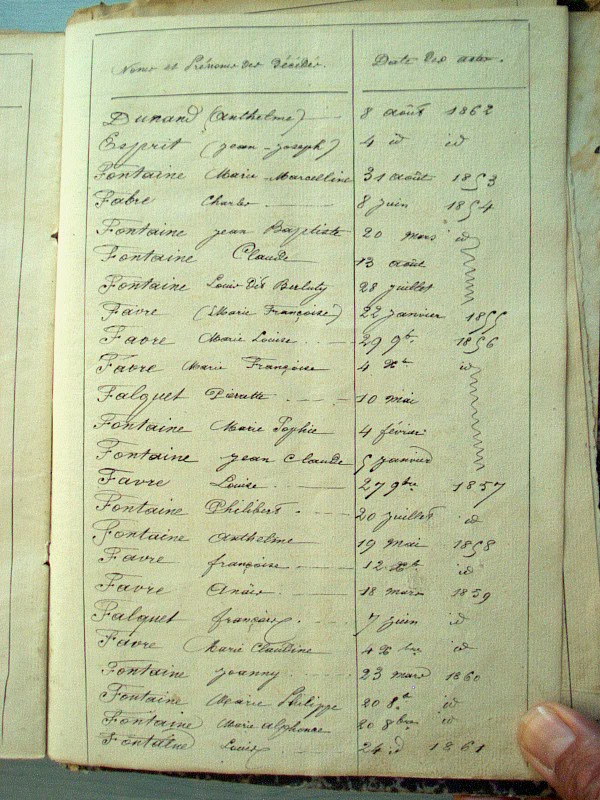 Noms et Prénoms des Décédés. Date des actes.
Dunand (Anthelme) 8 août 1862
Esprit (jean-joseph) 4 id id
Fontaine Marie-Marcelline 31 août 1853
Fabre Charles 8 juin 1854
Fontaine jean Baptiste 20 mars id
Fontaine Claude 13 août
Fontaine Louis dit Berluty 28 juillet
Favre (Marie Françoise) 22 janvier 1855
Favre Marie Louise 29 9bre 1856
Favre Marie Françoise 4 Xbre id
Falquet Pierrette 10 mai
Fontaine Marie Sophie 4 février
Fontaine jean Claude 5 janvier
Favre Louise 27 9bre 1857
Fontaine Philibert 20 juillet id
Fontaine Anthelme 19 Mai 1858
Favre françoise 12 Xbre id
Favre 18 mars 1859
Falquet françois 7 juin id
Favre Marie Claudine 4 Xbre id
Fontaine joanny 23 mars 1860
Fontaine Marie Philippe 20 8bre id
Fontaine Marie alphonse 20 8bre id
Fontaine Louis 24 id 1861